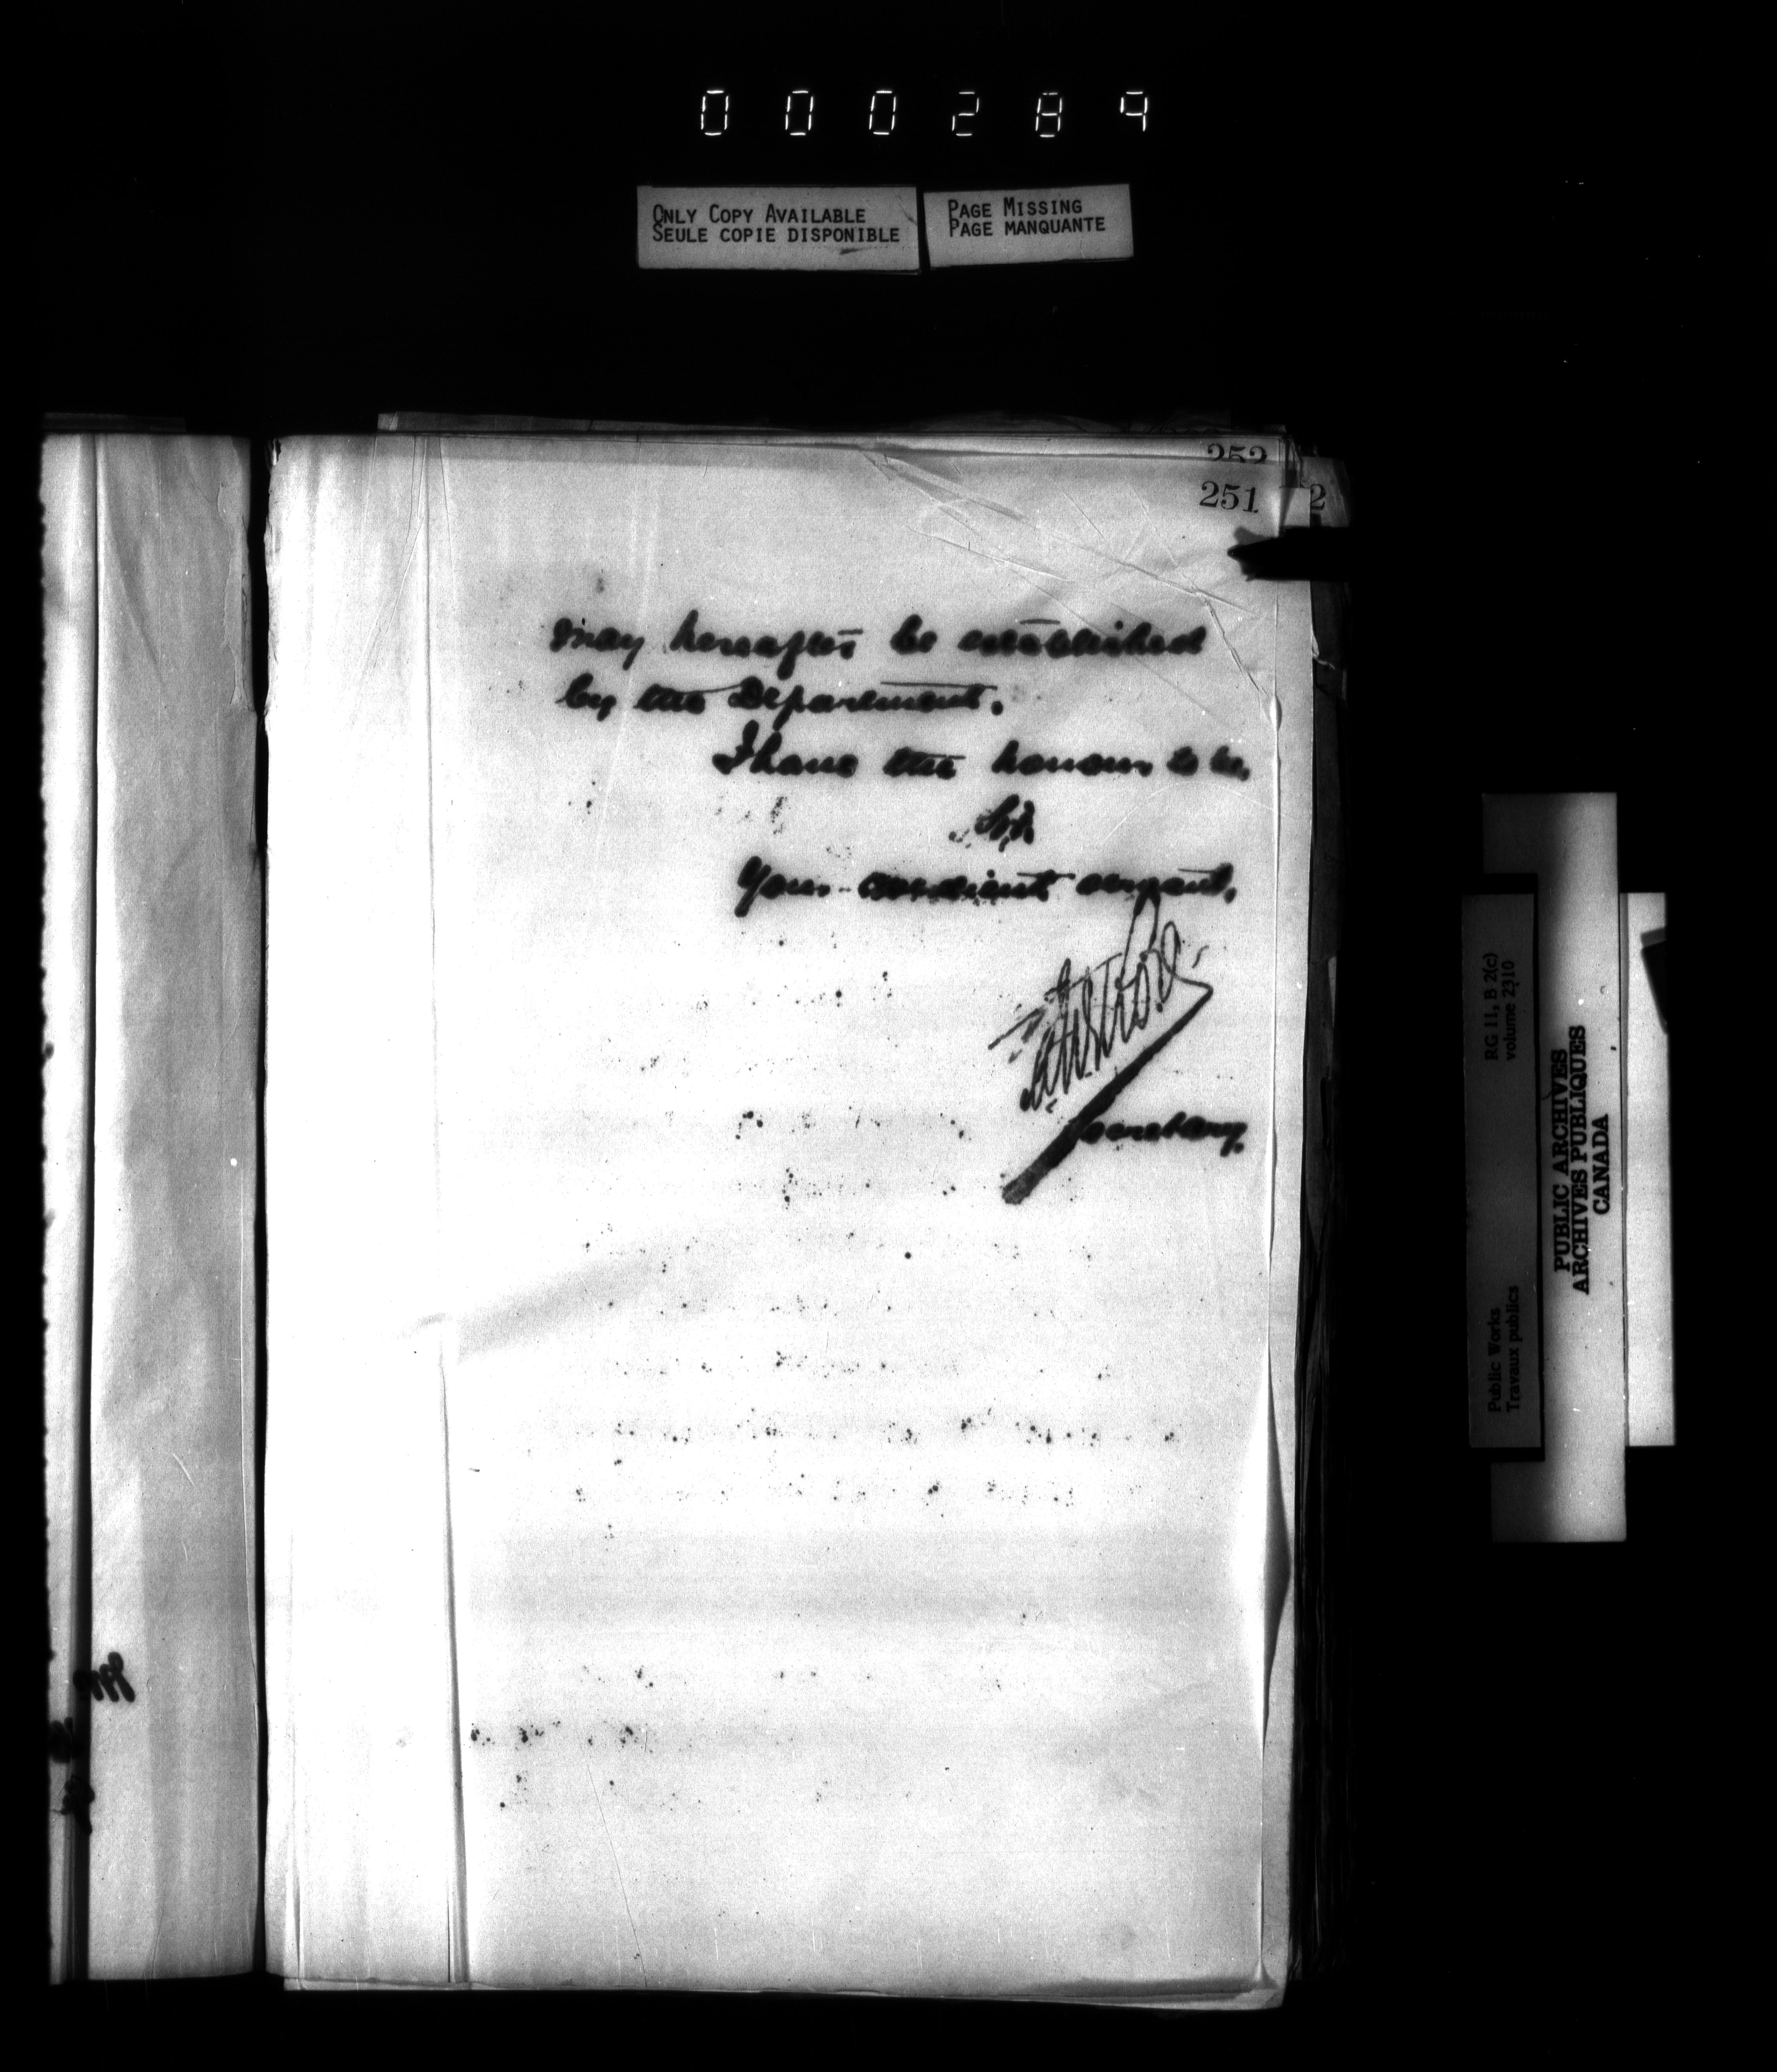 000289
ONLY COPY AVAILABLE
SEULE COPIE DISPONIBLE
PAGE MISSING
PAGE MANQUANTE
252
251
2
may hereafter be established
by the Department.
I have the honour to be,
Sir,
Your obedient servant,
Secretary.
RG 11, B 2(c)
volume 2310
Public Works
Travaux publics
PUBLIC ARCHIVES
ARCHIVES PUBLIQUES
CANADA